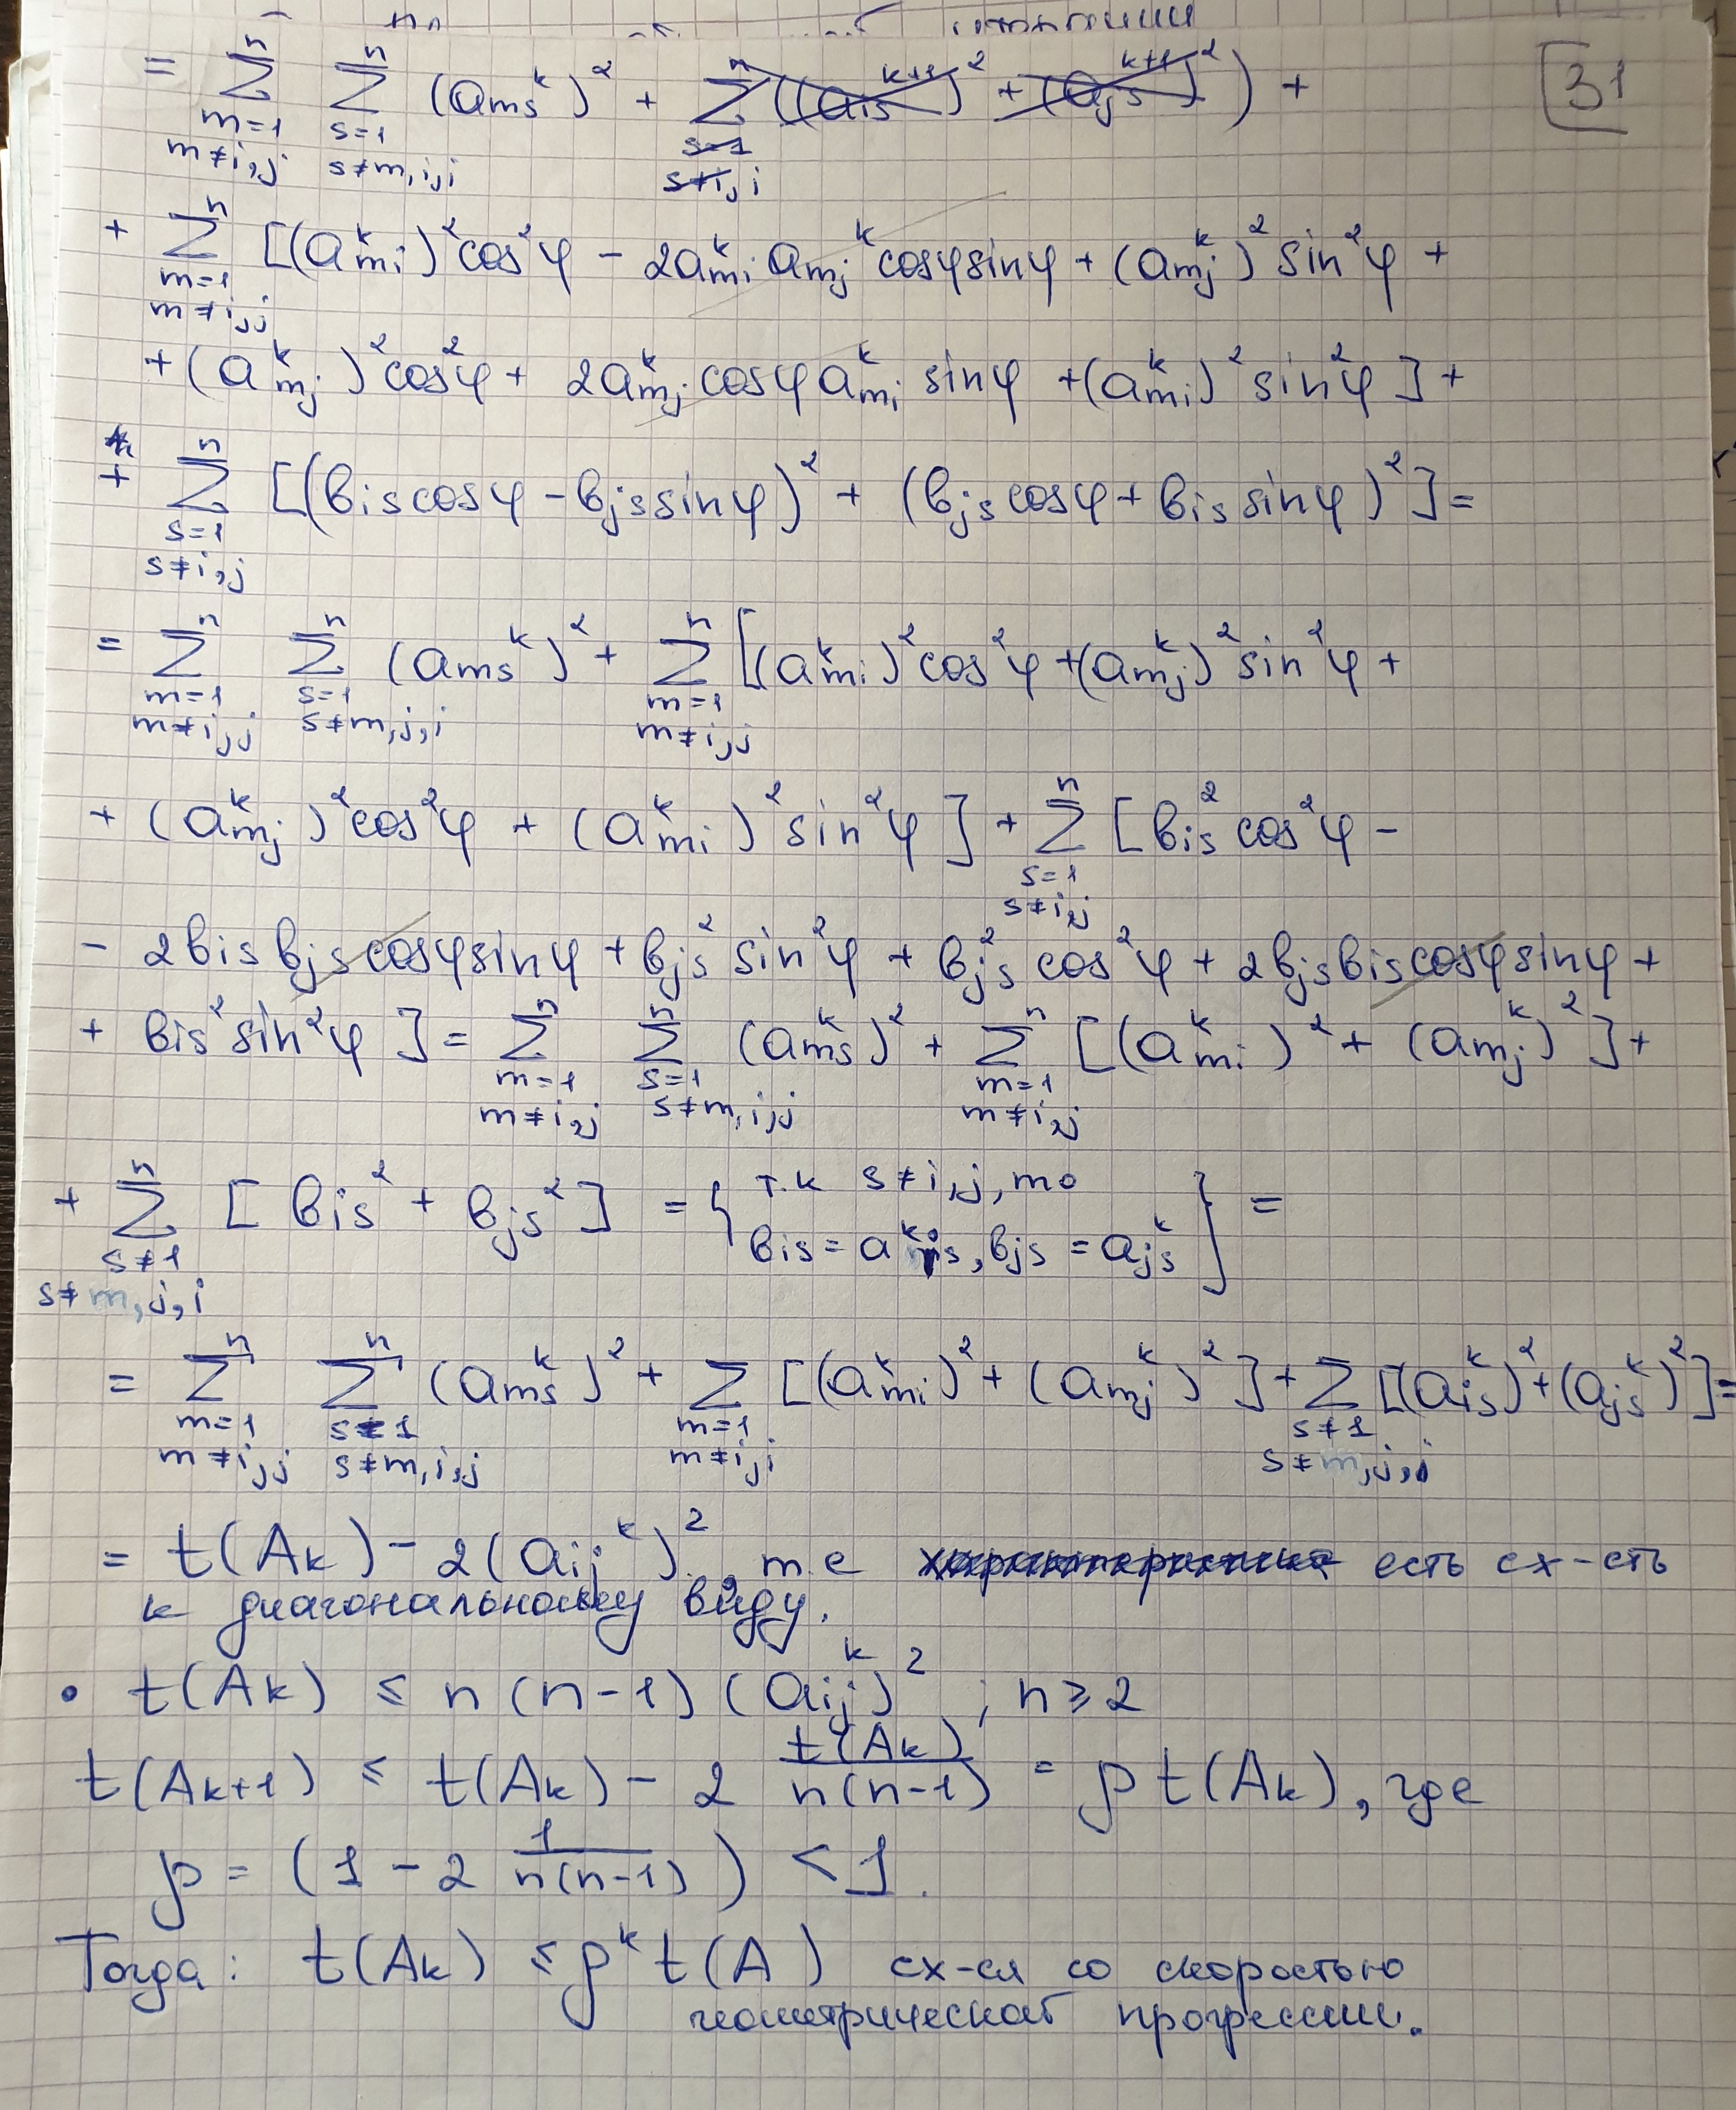 = \sum_{m=1, m≠i,j}^{n} \sum_{s=1, s≠m,i,j}^{n} (a_{ms}^k)^2 + ~~\sum_{s=1, s≠i,j}^{n} ((a_{is}^{k+1})^2 + (a_{js}^{k+1})^2~~) +
31
+ \sum_{m=1, m≠i,j}^{n} [(a_{mi}^k)^2 cos^2φ − 2a_{mi}^k a_{mj}^k cosφ sinφ + (a_{mj}^k)^2 sin^2φ +
+ (a_{mj}^k)^2 cos^2φ + 2a_{mj}^k cosφ a_{mi}^k sinφ + (a_{mi}^k)^2 sin^2φ] +
+ \sum_{s=1, s≠i,j}^{n} [(b_{is} cosφ − b_{js} sinφ)^2 + (b_{js} cosφ + b_{is} sinφ)^2] =
= \sum_{m=1, m≠i,j}^{n} \sum_{s=1, s≠m,j,i}^{n} (a_{ms}^k)^2 + \sum_{m=1, m≠i,j}^{n} [(a_{mi}^k)^2 cos^2φ + (a_{mj}^k)^2 sin^2φ +
+ (a_{mj}^k)^2 cos^2φ + (a_{mi}^k)^2 sin^2φ] + \sum_{s=1, s≠i,j}^{n} [b_{is}^2 cos^2φ −
− 2b_{is} b_{js} cosφ sinφ + b_{js}^2 sin^2φ + b_{js}^2 cos^2φ + 2b_{js} b_{is} cosφ sinφ +
+ b_{is}^2 sin^2φ] = \sum_{m=1, m≠i,j}^{n} \sum_{s=1, s≠m,i,j}^{n} (a_{ms}^k)^2 + \sum_{m=1, m≠i,j}^{n} [(a_{mi}^k)^2 + (a_{mj}^k)^2] +
+ \sum_{s≠1, s≠m,j,i}^{n} [b_{is}^2 + b_{js}^2] = { т.к s≠i,j, то b_{is} = a_{is}^k, b_{js} = a_{js}^k } =
= \sum_{m=1, m≠i,j}^{n} \sum_{s=1, s≠m,i,j}^{n} (a_{ms}^k)^2 + \sum_{m=1, m≠i,j} [(a_{mi}^k)^2 + (a_{mj}^k)^2] + \sum_{s≠1, s≠m,j,i} [(a_{is}^k)^2 + (a_{js}^k)^2] =
= t(A_k) − 2(a_{ij}^k)^2, т.е есть сх-сть
к диагональному виду.
• t(A_k) ≤ n(n−1)(a_{ij}^k)^2 ; n ≥ 2
t(A_{k+1}) ≤ t(A_k) − 2 \frac{t(A_k)}{n(n−1)} = ρ t(A_k), где
ρ = (1 − 2 \frac{1}{n(n−1)}) < 1.
Тогда: t(A_k) ≤ ρ^k t(A) сх-ся со скоростью
геометрической прогрессии.